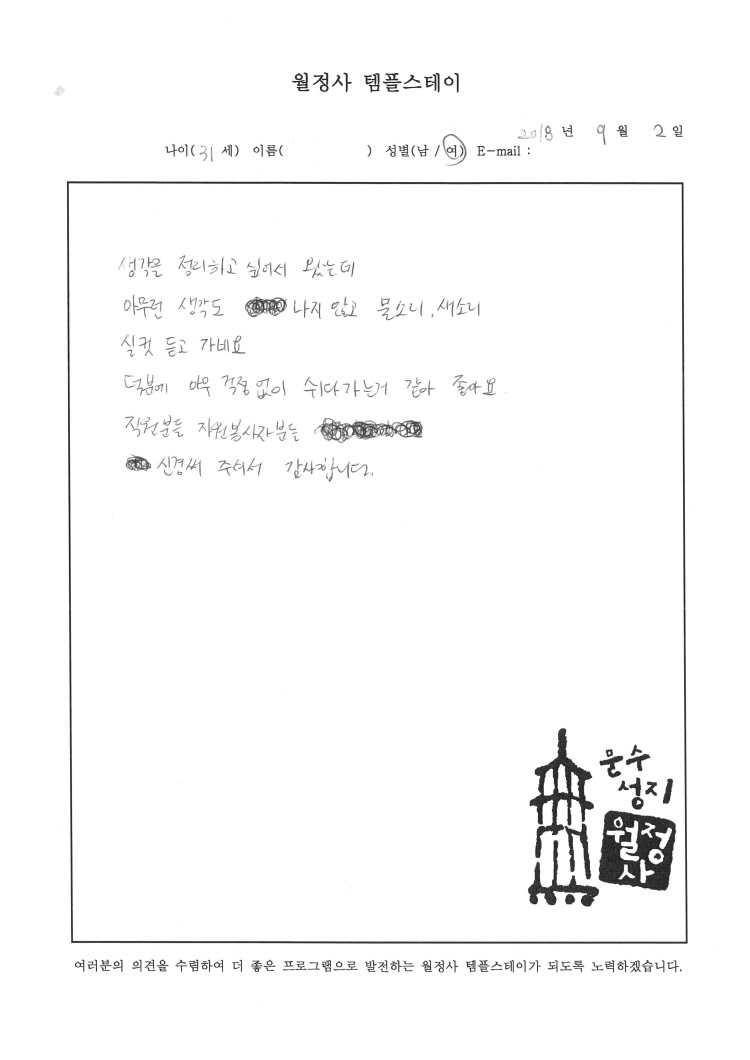 월정사 템플스테이
2018 년 9 월 2 일
나이( 31 세) 이름( ) 성별(남 / 여) E-mail :
생각을 정리하고 싶어서 왔는데
아무런 생각도 나지 않고 물소리, 새소리
실컷 듣고 가네요
덕분에 아무 걱정 없이 쉬다가는거 같아 좋아요.
직원분들 자원봉사자분들
신경써 주셔서 감사합니다.
문수
성지
월정
사
여러분의 의견을 수렴하여 더 좋은 프로그램으로 발전하는 월정사 템플스테이가 되도록 노력하겠습니다.